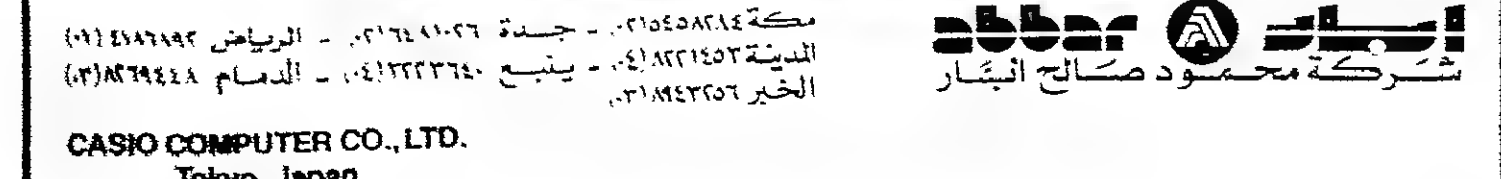 abbar ابار
شركة محمود صالح ابار
مكة ٥٤٥٨٢٨٤(٠٢) - جسدة ٦٤٨١٠٢٦(٠٢) - الرياض ٤١٨٦٨٩٢(٠١)
المدينة ٨٢٢١٤٥٣(٠٤) - ينبع ٣٢٢٣٦٤٠(٠٤) - الدمام ٨٢٦٩٤٤٨(٠٣)
الخبر ٨٩٤٣٢٥٦(٠٣)
CASIO COMPUTER CO., LTD.
Tokyo, Japan